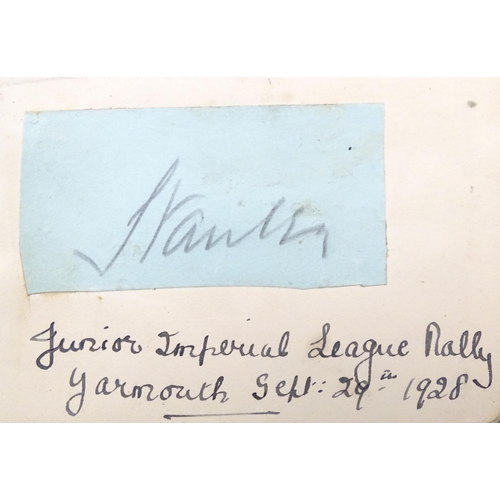 Stanley
Junior Imperial League Rally
Yarmouth Sept: 29th 1928